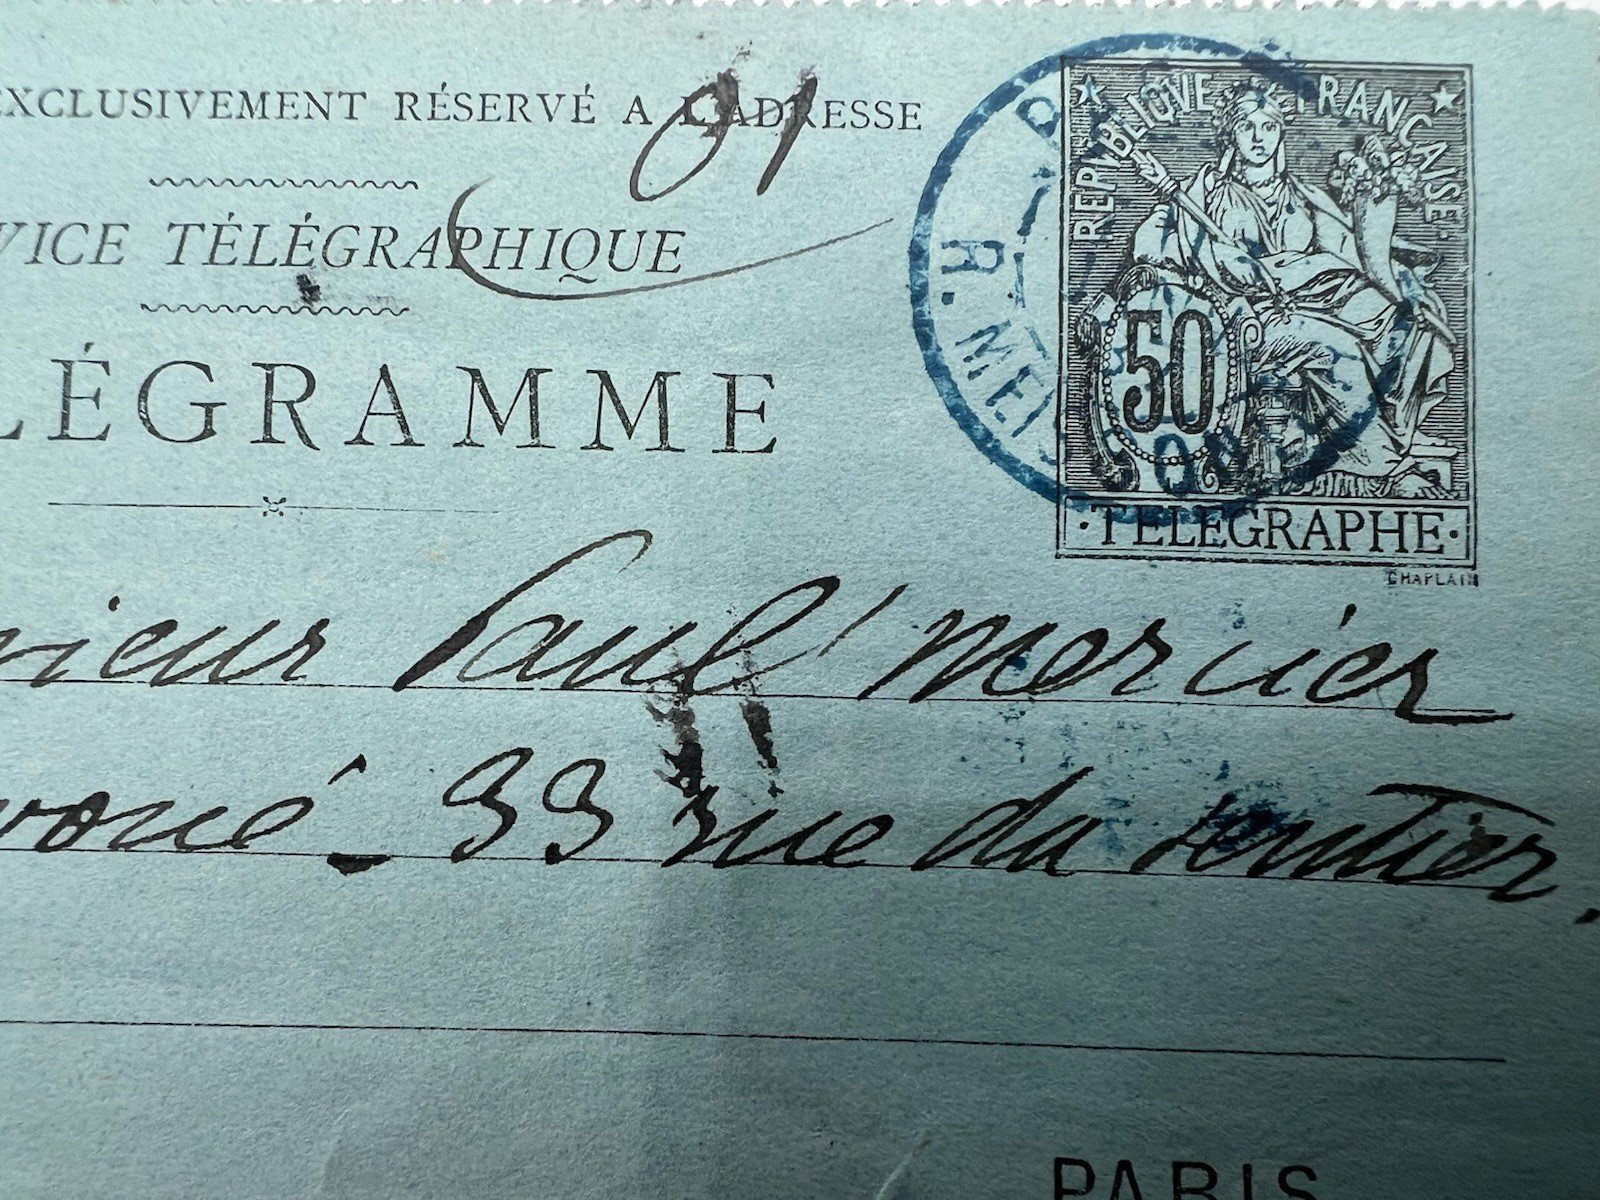 EXCLUSIVEMENT RÉSERVÉ A L'ADRESSE
91
VICE TÉLÉGRAPHIQUE
LÉGRAMME
REPVBLIQVE FRANÇAISE
50
TELEGRAPHE
CHAPLAIN
R. ME
sieur Paul Mercier
voué - 33 rue du sentier.
PARIS